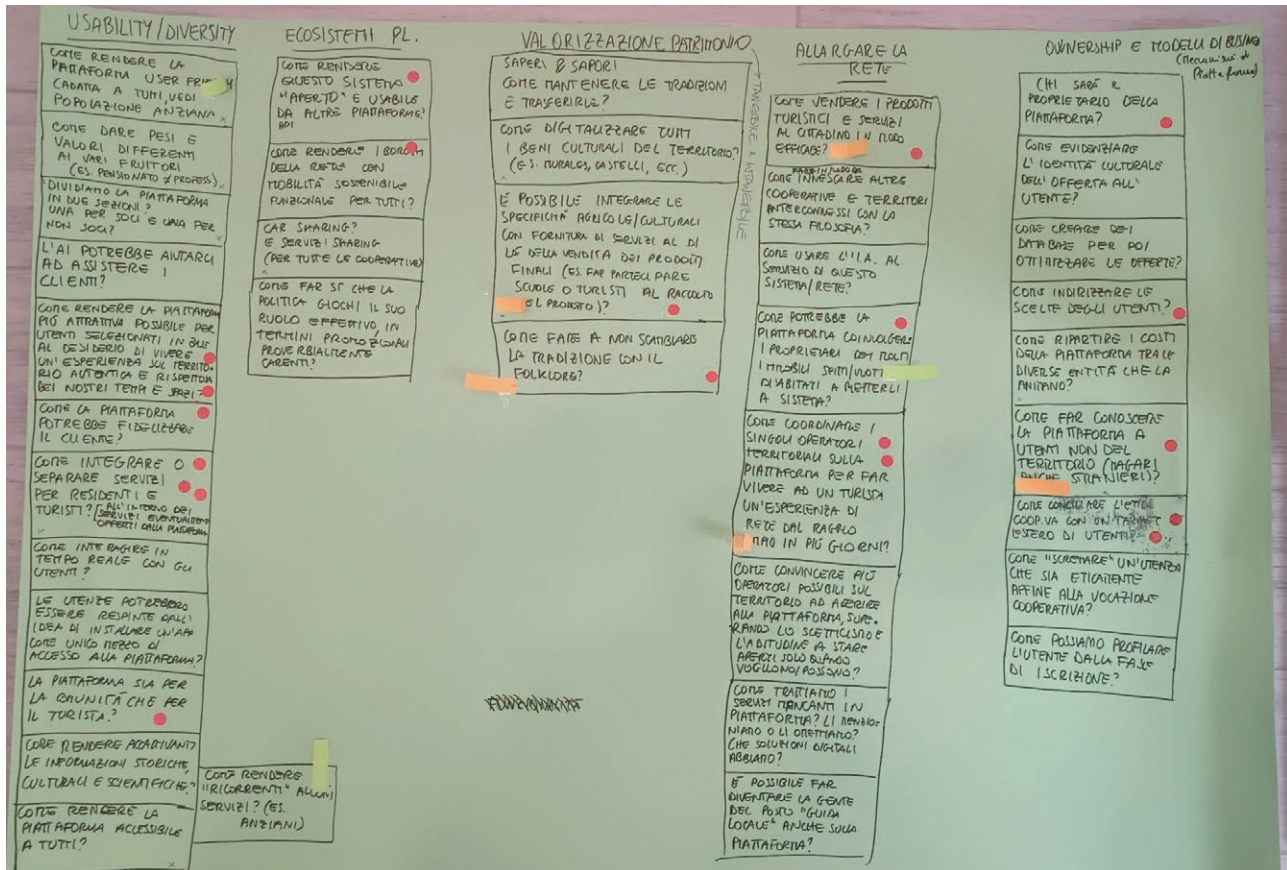 USABILITY/DIVERSITY
COME RENDERE LA
PIATTAFORMA USER
CADATTA A TUTTI, VEDI
POPOLAZIONE ANZIANA
COME DARE PESI E
VALORI DIFFERENTI
AI VARI FRUITORI
(ES. PENSIONATO ≠ PROFESS)
DIVIDIAMO LA PIATTAFORMA
IN DUE SEZIONI?
UNA PER SOCI E UNA PER
NON SOCI?
L'AI POTREBBE AIUTARCI
AD ASSISTERE I
CLIENTI?
COME RENDERE LA PIATTAFORMA
PIÙ ATTRATTIVA POSSIBILE PER
UTENTI SELEZIONATI IN
AL DESIDERIO DI VIVERE
UN'ESPERIENZA SUL TERRITO-
RIO AUTENTICA E RISPETTOSA
DEI NOSTRI TEMPI E SPAZI?
COME LA PIATTAFORMA
POTREBBE FIDELIZZARE
IL CLIENTE?
COME INTEGRARE O
SEPARARE SERVIZI
PER RESIDENTI E
TURISTI? (ALL'INTERNO DEI
SERVIZI EVENTUALMENTE
OFFERTI DALLA PIATTAFORMA
COME INTERAGIRE IN
TEMPO REALE CON GLI
UTENTI?
LE UTENZE POTREBBERO
ESSERE RESPINTE DALL'
IDEA DI INSTALLARE UN'APP
COME UNICO MEZZO DI
ACCESSO ALLA PIATTAFORMA?
LA PIATTAFORMA SIA PER
LA COMUNITÀ CHE PER
IL TURISTA?
COME RENDERE ACCATTIVANTI
LE INFORMAZIONI STORICHE,
CULTURALI E SCIENTIFICHE?
COME RENDERE LA
PIATTAFORMA ACCESSIBILE
A TUTTI?
COME RENDERE
"RICORRENTI" ALCUNI
SERVIZI? (ES.
ANZIANI)
ECOSISTEMI PL.
COME RENDERE
QUESTO SISTEMA
"APERTO" E USABILE
DA ALTRE PIATTAFORME?
COME RENDERE I BORGHI
DELLA RETE CON
MOBILITÀ SOSTENIBILE
FUNZIONALE PER TUTTI?
CAR SHARING?
E SERVIZI SHARING
(PER TUTTE LE COOPERATIVE)
COME FAR SÌ CHE LA
POLITICA GIOCHI IL SUO
RUOLO EFFETTIVO, IN
TERMINI PROMOZIONALI
PROVERBIALMENTE
CARENTI?
VALORIZZAZIONE PATRIMONIO
→ TANGIBILE & INTANGIBILE
SAPERI & SAPORI
COME MANTENERE LE TRADIZIONI
E TRASFERIRLE?
COME DIGITALIZZARE TUTTI
I BENI CULTURALI DEL TERRITORIO?
(ES. MURALES, CASTELLI, ECC.)
È POSSIBILE INTEGRARE LE
SPECIFICITÀ AGRICOLE/CULTURALI
CON FORNITURA DI SERVIZI AL DI
LÀ DELLA VENDITA DEI PRODOTTI
FINALI (ES. FAR PARTECIPARE
SCUOLE O TURISTI AL RACCOLTO
DEL PRODOTTO)?
COME FARE A NON SCAMBIARE
LA TRADIZIONE CON IL
FOLKLORE?
ALLARGARE LA
RETE
COME VENDERE I PRODOTTI
TURISTICI E SERVIZI
AL CITTADINO IN MODO
EFFICACE?
COME INNESCARE ALTRE
COOPERATIVE E TERRITORI
INTERCONNESSI CON LA
STESSA FILOSOFIA?
COME USARE L'I.A. AL
SERVIZIO DI QUESTO
SISTEMA/RETE?
COME POTREBBE LA
PIATTAFORMA COINVOLGERE
I PROPRIETARI DEI MOLTI
IMMOBILI SFITTI/VUOTI
DISABITATI A METTERLI
A SISTEMA?
COME COORDINARE I
SINGOLI OPERATORI
TERRITORIALI SULLA
PIATTAFORMA PER FAR
VIVERE AD UN TURISTA
UN'ESPERIENZA DI
RETE DAL
IN PIÙ GIORNI?
COME CONVINCERE PIÙ
OPERATORI POSSIBILI SUL
TERRITORIO AD ADERIRE
ALLA PIATTAFORMA, SUPE-
RANDO LO SCETTICISMO E
L'ABITUDINE A STARE
APERTI SOLO QUANDO
VOGLIONO/POSSONO?
COME TRATTIAMO I
SERVIZI MANCANTI IN
PIATTAFORMA? LI MENZIO-
NIAMO O LI OMETTIAMO?
CHE SOLUZIONI DIGITALI
ABBIAMO?
È POSSIBILE FAR
DIVENTARE LA GENTE
DEL POSTO "GUIDA
LOCALE" ANCHE SULLA
PIATTAFORMA?
OWNERSHIP E MODELLI DI BUSINESS
(Meccanismi di
Piattaforma)
CHI SARÀ IL
PROPRIETARIO DELLA
PIATTAFORMA?
COME EVIDENZIARE
L'IDENTITÀ CULTURALE
DELL'OFFERTA ALL'
UTENTE?
COME CREARE DEI
DATABASE PER POI
OTTIMIZZARE LE OFFERTE?
COME INDIRIZZARE LE
SCELTE DEGLI UTENTI?
COME RIPARTIRE I COSTI
DELLA PIATTAFORMA TRA LE
DIVERSE ENTITÀ CHE LA
ANIMANO?
COME FAR CONOSCERE
LA PIATTAFORMA A
UTENTI NON DEL
TERRITORIO (MAGARI
ANCHE STRANIERI)?
COME CONCILIARE L'ETICA
COOP.VA CON UN TARGET
ESTERO DI UTENTI?
COME "SCREMARE" UN'UTENZA
CHE SIA ETICAMENTE
AFFINE ALLA VOCAZIONE
COOPERATIVA?
COME POSSIAMO PROFILARE
L'UTENTE DALLA FASE
DI ISCRIZIONE?